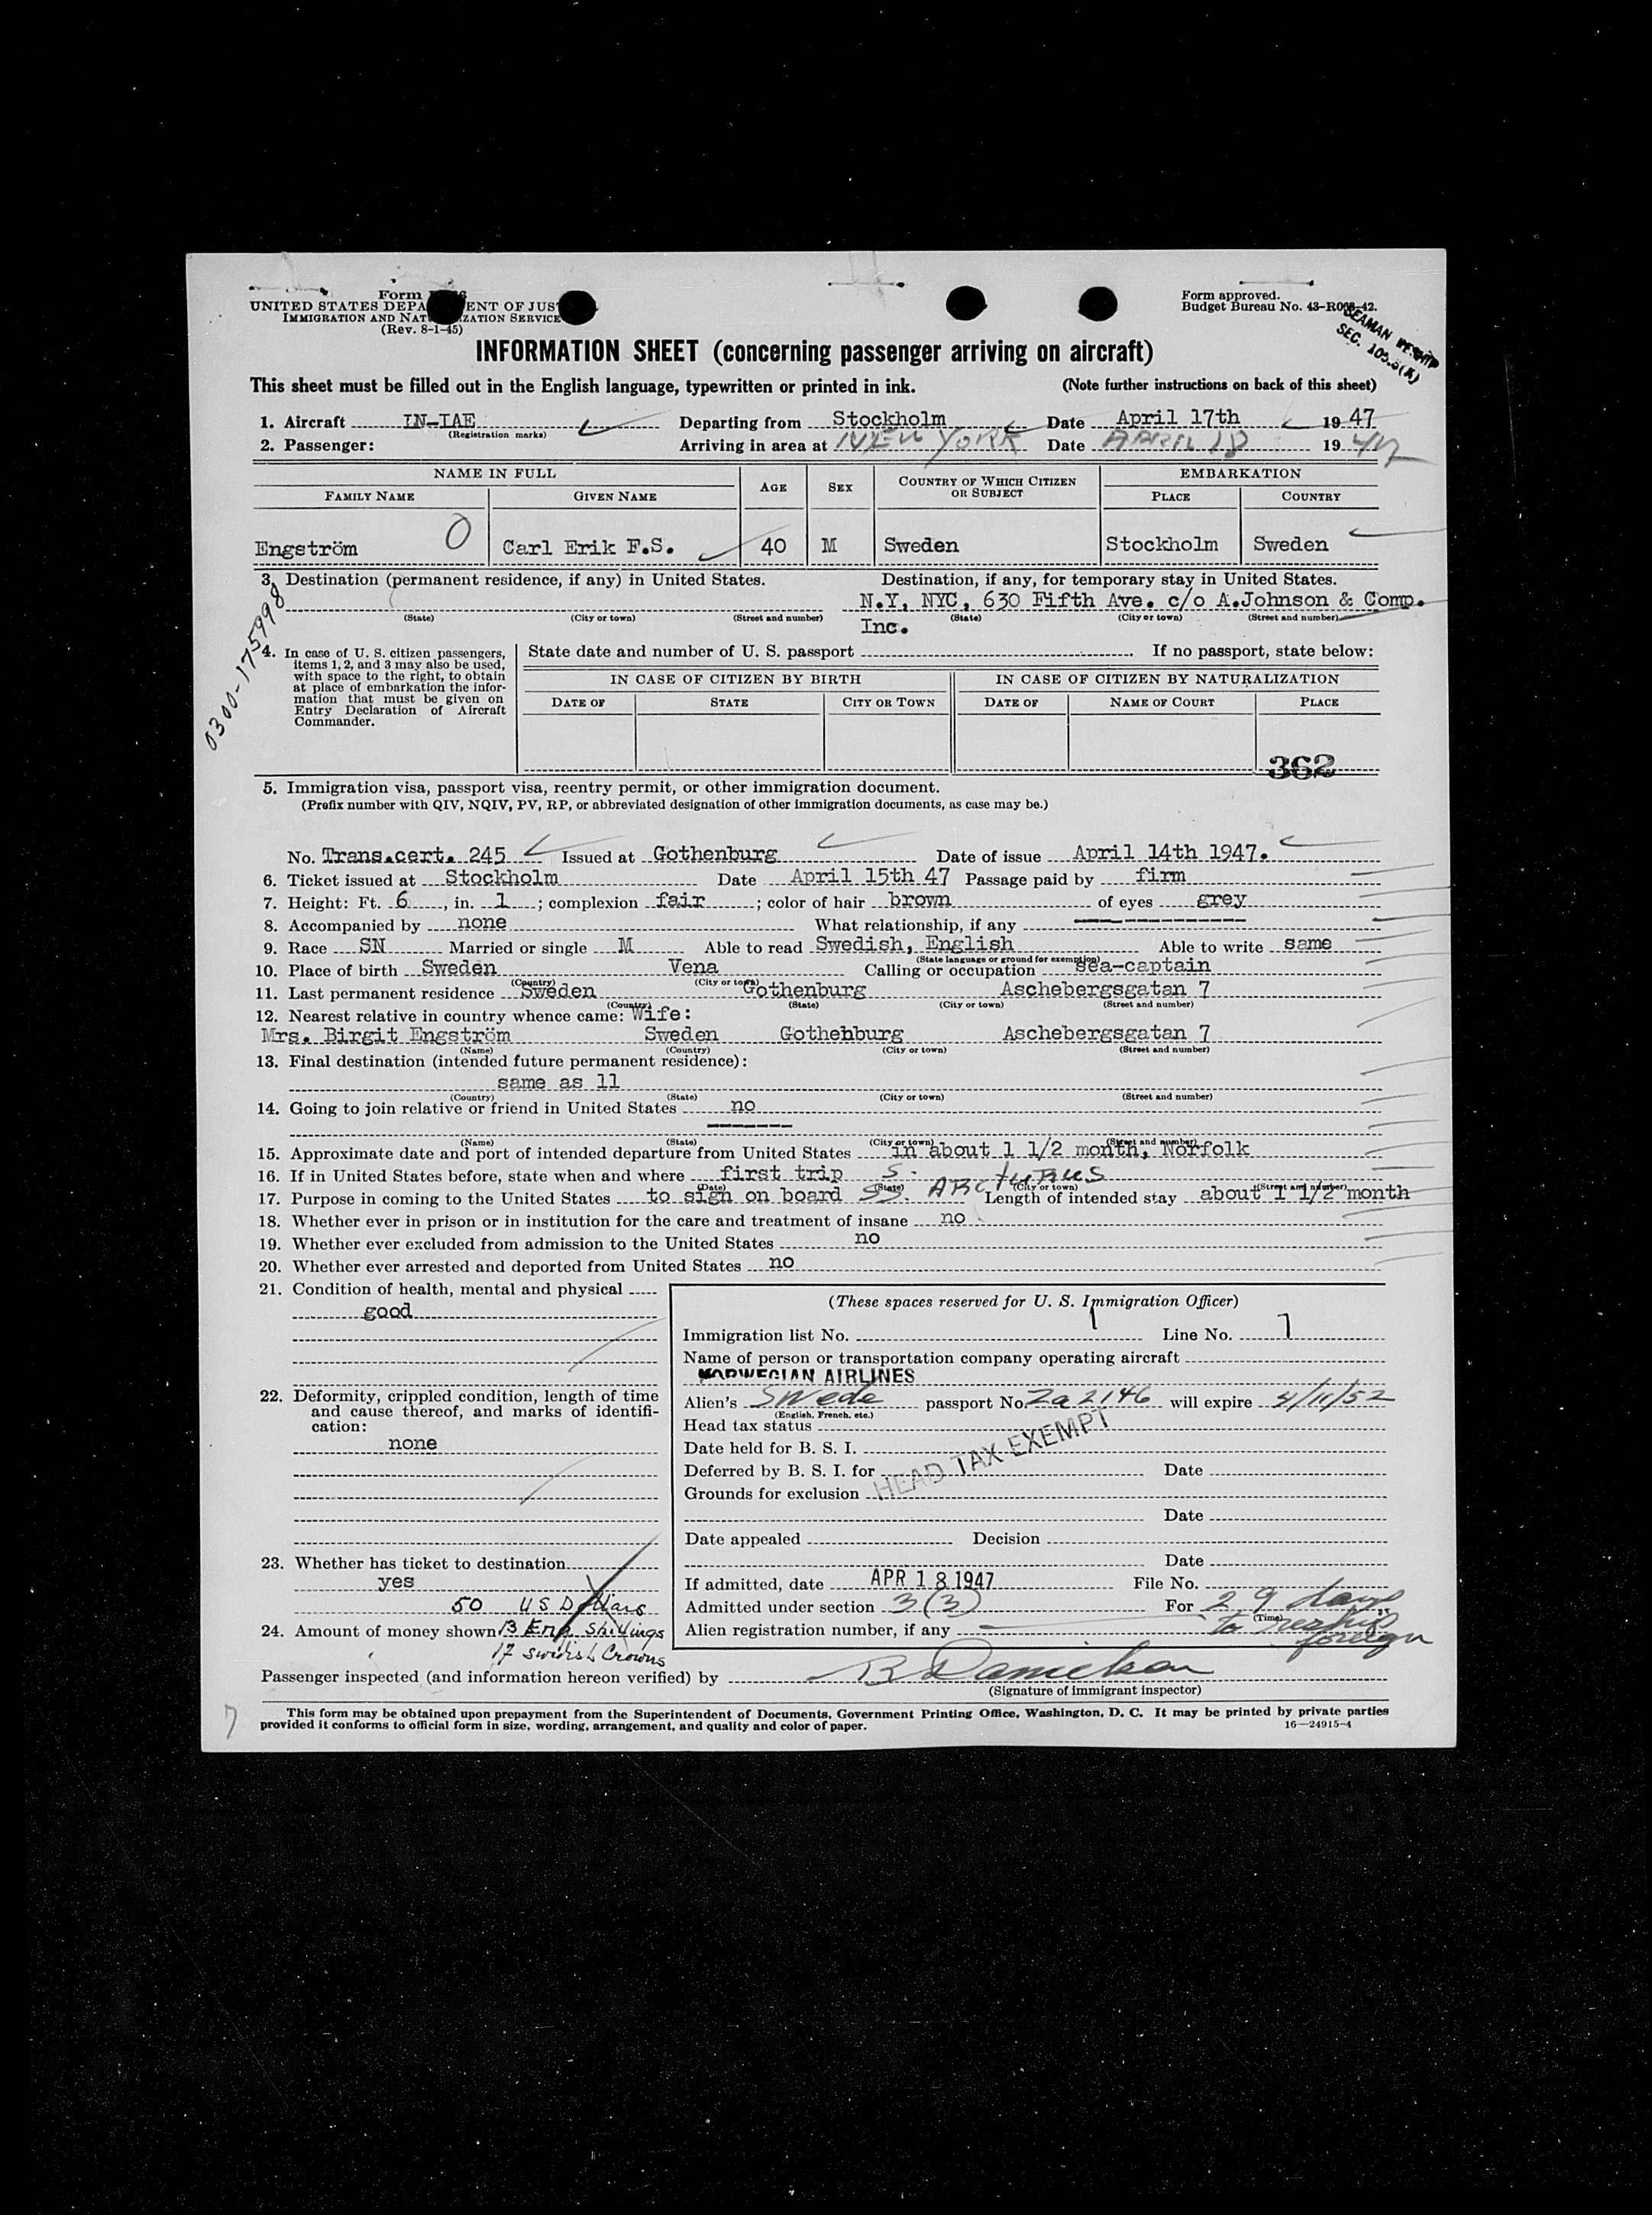 Form
UNITED STATES DEPA ENT OF JUS
IMMIGRATION AND NAT ZATION SERVICE
(Rev. 8-1-45)
Form approved.
Budget Bureau No. 43-R068-42.
SEAMAN
SEC. 105.5(A)
INFORMATION SHEET (concerning passenger arriving on aircraft)
This sheet must be filled out in the English language, typewritten or printed in ink. (Note further instructions on back of this sheet)
1. Aircraft LN-IAE Departing from Stockholm Date April 17th 1947
(Registration marks)
2. Passenger: Arriving in area at NEW YORK Date APRIL 18 1947
NAME IN FULL AGE SEX COUNTRY OF WHICH CITIZEN OR SUBJECT EMBARKATION
FAMILY NAME GIVEN NAME PLACE COUNTRY
Engström O Carl Erik F.S. 40 M Sweden Stockholm Sweden
3. Destination (permanent residence, if any) in United States. Destination, if any, for temporary stay in United States.
N.Y, NYC, 630 Fifth Ave. c/o A.Johnson & Comp.
(State) (City or town) (Street and number) (State) (City or town) (Street and number)
Inc.
0300-175998
4. In case of U. S. citizen passengers, items 1, 2, and 3 may also be used, with space to the right, to obtain at place of embarkation the information that must be given on Entry Declaration of Aircraft Commander.
State date and number of U. S. passport If no passport, state below:
IN CASE OF CITIZEN BY BIRTH IN CASE OF CITIZEN BY NATURALIZATION
DATE OF STATE CITY OR TOWN DATE OF NAME OF COURT PLACE
362
5. Immigration visa, passport visa, reentry permit, or other immigration document.
(Prefix number with QIV, NQIV, PV, RP, or abbreviated designation of other immigration documents, as case may be.)
No. Trans.cert. 245 Issued at Gothenburg Date of issue April 14th 1947.
6. Ticket issued at Stockholm Date April 15th 47 Passage paid by firm
7. Height: Ft. 6, in. 1; complexion fair; color of hair brown of eyes grey
8. Accompanied by none What relationship, if any
9. Race SN Married or single M Able to read Swedish, English Able to write same
(State language or ground for exemption)
10. Place of birth Sweden Vena Calling or occupation sea-captain
(Country) (City or town)
11. Last permanent residence Sweden Gothenburg Aschebergsgatan 7
(Country) (State) (City or town) (Street and number)
12. Nearest relative in country whence came: Wife:
Mrs. Birgit Engström Sweden Gothenburg Aschebergsgatan 7
(Name) (Country) (City or town) (Street and number)
13. Final destination (intended future permanent residence):
same as 11
(Country) (State) (City or town) (Street and number)
14. Going to join relative or friend in United States no
(Name) (State) (City or town) (Street and number)
15. Approximate date and port of intended departure from United States in about 1 1/2 month, Norfolk
16. If in United States before, state when and where first trip
(Date) (State) (City or town) (Street and number)
17. Purpose in coming to the United States to sign on board SS. ARCTURUS Length of intended stay about 1 1/2 month
18. Whether ever in prison or in institution for the care and treatment of insane no
19. Whether ever excluded from admission to the United States no
20. Whether ever arrested and deported from United States no
21. Condition of health, mental and physical
good
22. Deformity, crippled condition, length of time and cause thereof, and marks of identification:
none
23. Whether has ticket to destination
yes
50 US Dollars
24. Amount of money shown 13 Eng. Shillings
17 Swedish Crowns
(These spaces reserved for U. S. Immigration Officer)
Immigration list No. 1 Line No. 7
Name of person or transportation company operating aircraft
NORWEGIAN AIRLINES
Alien's Swede passport No. Za 2146 will expire 4/11/52
(English, French, etc.)
Head tax status
HEAD TAX EXEMPT
Date held for B. S. I.
Deferred by B. S. I. for Date
Grounds for exclusion
Date
Date appealed Decision
Date
If admitted, date APR 18 1947 File No.
Admitted under section 3(3) For 29 days
(Time)
to reship
Alien registration number, if any foreign
Passenger inspected (and information hereon verified) by R Danielson
(Signature of immigrant inspector)
7
This form may be obtained upon prepayment from the Superintendent of Documents, Government Printing Office, Washington, D. C. It may be printed by private parties
provided it conforms to official form in size, wording, arrangement, and quality and color of paper. 16—24915-4